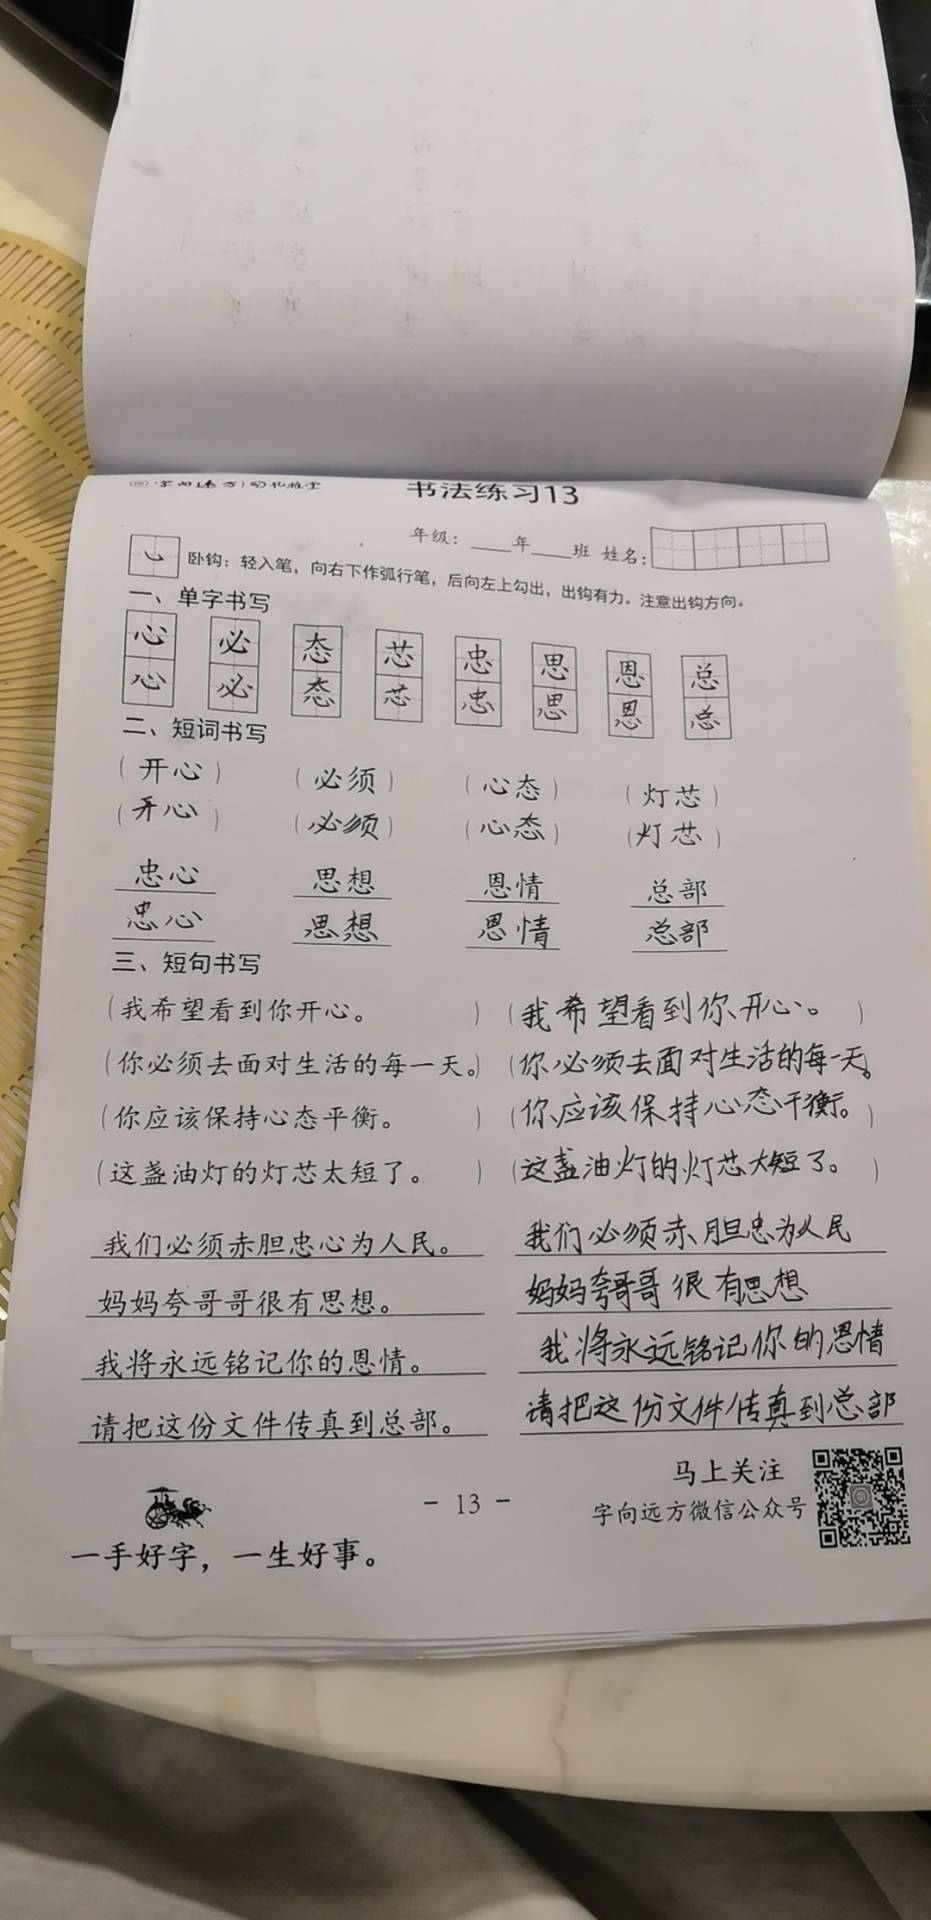 书法练习13
年级：____年____班 姓名：
卧钩：轻入笔，向右下作弧行笔，后向左上勾出，出钩有力。注意出钩方向。
一、单字书写
心 必 态 芯 忠 思 恩 总
心 必 态 芯 忠 思 恩 总
二、短词书写
（开心） （必须） （心态） （灯芯）
（开心） （必须） （心态） （灯芯）
忠心 思想 恩情 总部
忠心 思想 恩情 总部
三、短句书写
（我希望看到你开心。） （我希望看到你开心。）
（你必须去面对生活的每一天。） （你必须去面对生活的每一天。）
（你应该保持心态平衡。） （你应该保持心态平衡。）
（这盏油灯的灯芯太短了。） （这盏油灯的灯芯太短了。）
我们必须赤胆忠心为人民。 我们必须赤胆忠为人民
妈妈夸哥哥很有思想。 妈妈夸哥哥很有思想
我将永远铭记你的恩情。 我将永远铭记你的恩情
请把这份文件传真到总部。 请把这份文件传真到总部
马上关注
- 13 -
字向远方微信公众号
一手好字，一生好事。